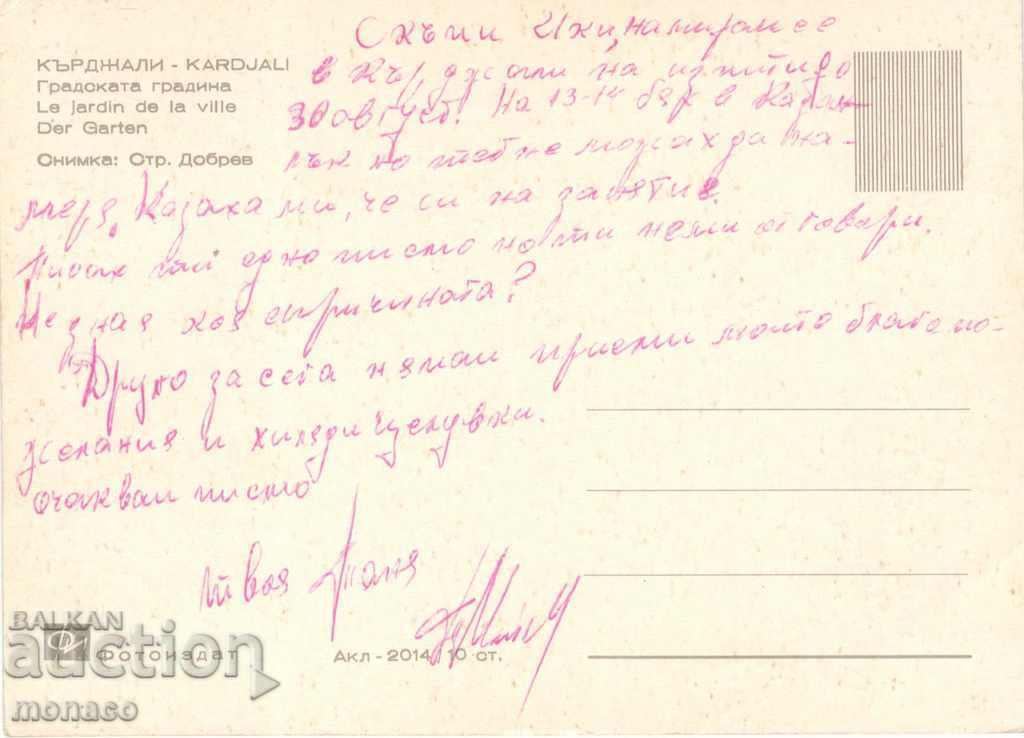 КЪРДЖАЛИ - KARDJALI
Градската градина
Le jardin de la ville
Der Garten
Снимка: Стр. Добрев
Скъпи намирам се
в Кърджали на
30 август. На 13-14 бях в Казан-
лък но тебе не можах да на-
меря, Казаха ми, че си на занятие.
Писах ти едно писмо но ти неми отговари.
Не зная коя е причината?
Друго за сега няман приеми моито благопо-
желания и хиляди целувки.
очаквам писмо
твоя Таня
BALKAN
auction
Фотоиздат
monaco
Акл - 2014, 10 ст.